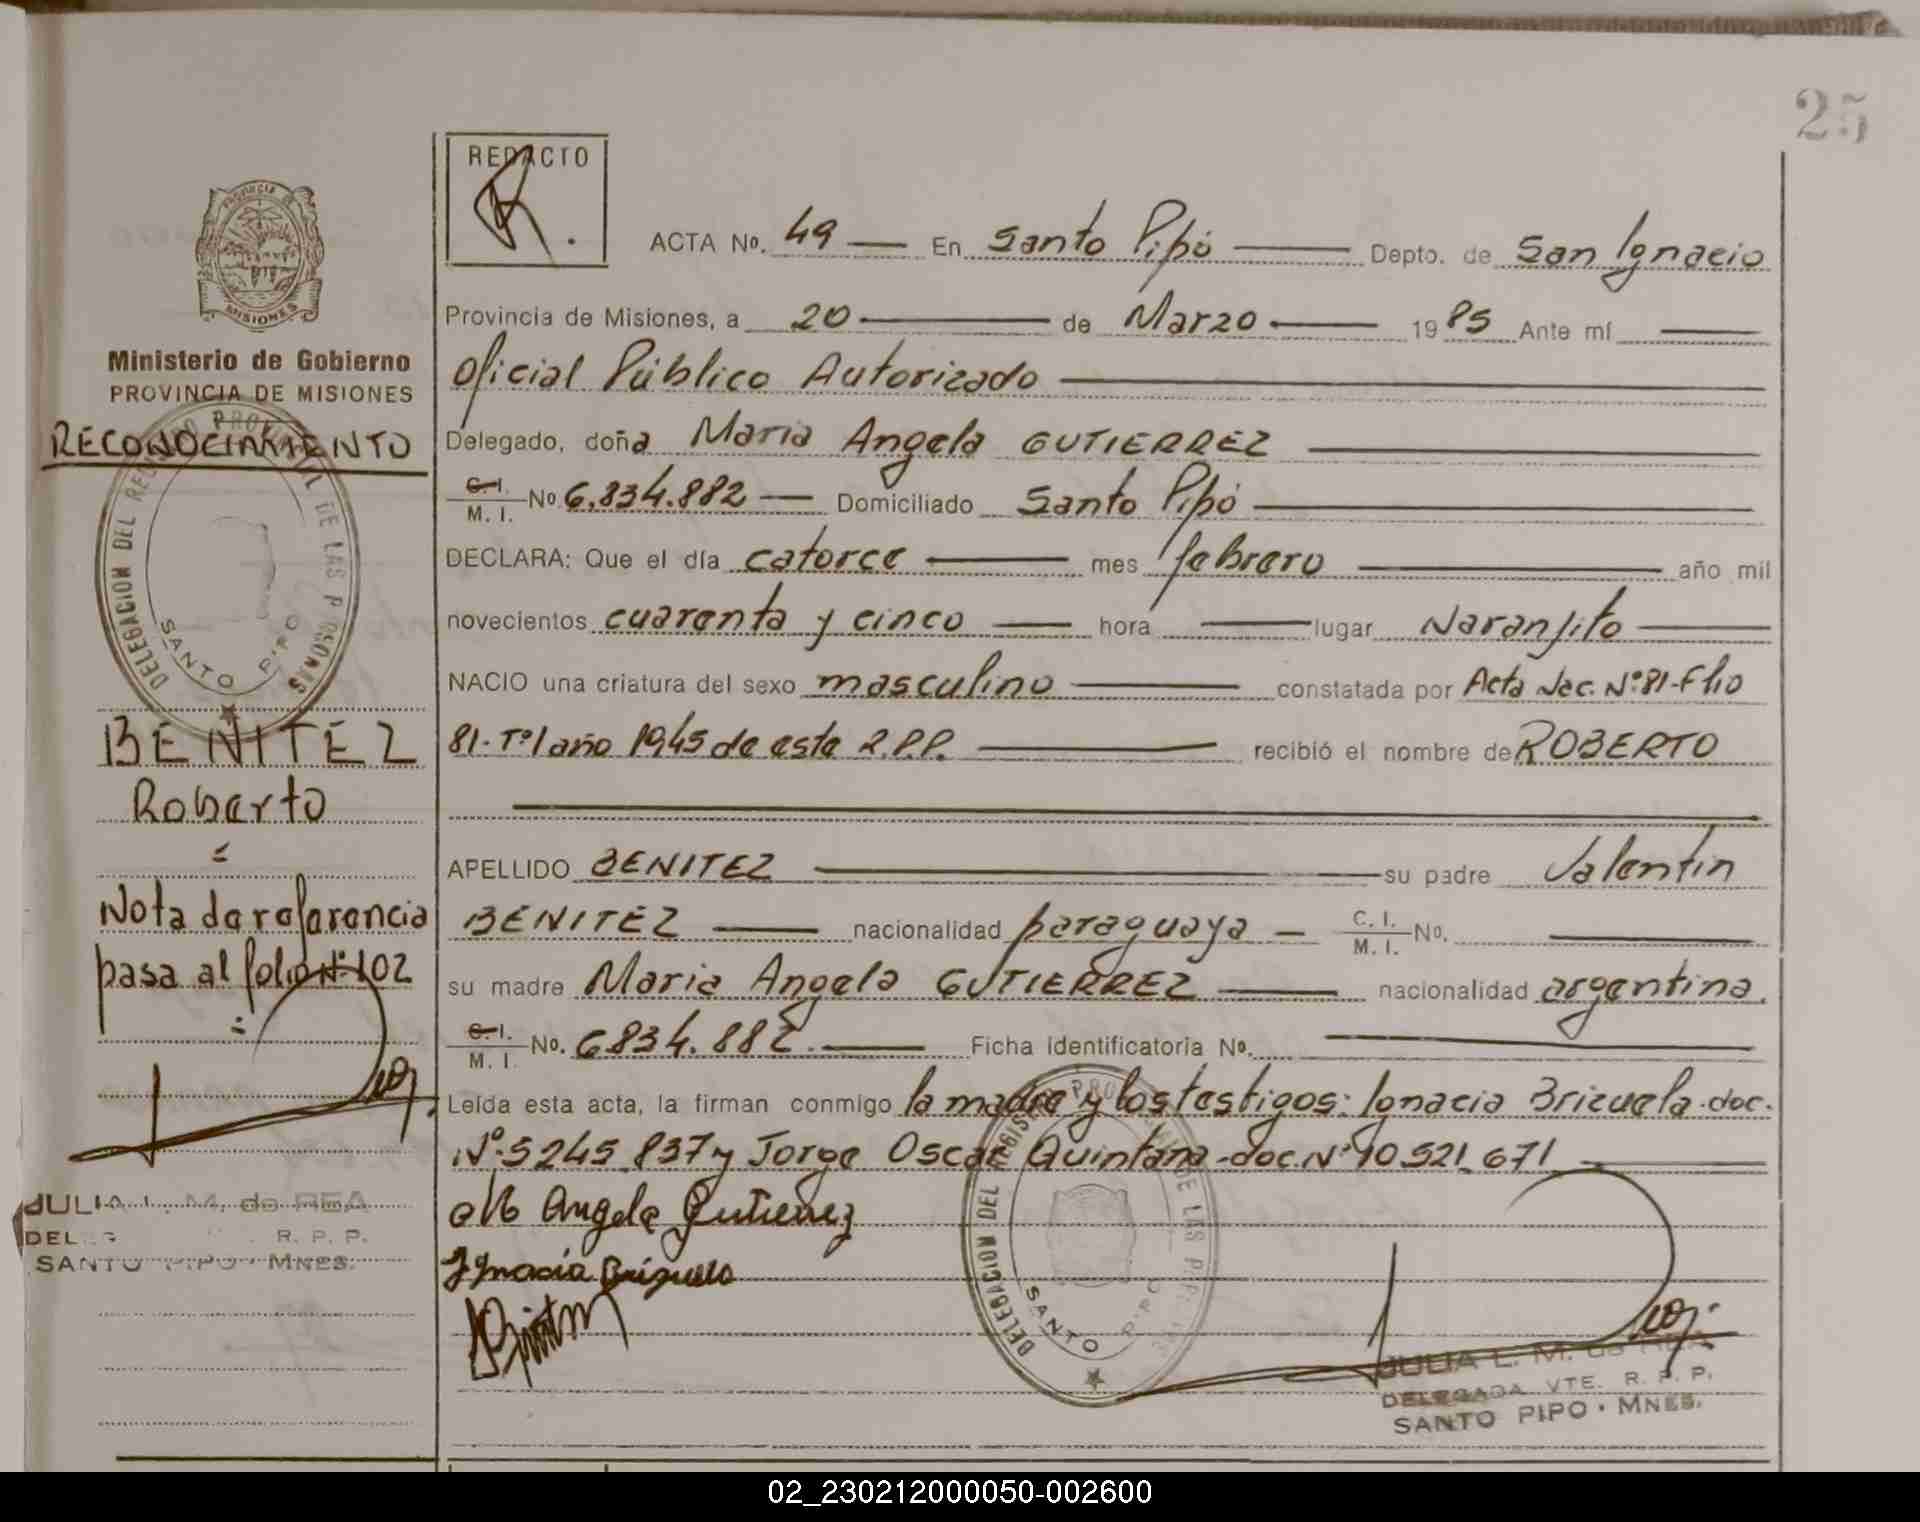 25
REDACTO
ACTA No. 49 — En Santo Pipó — Depto. de San Ignacio
Provincia de Misiones, a 20 — de Marzo — 1985 Ante mí —
Oficial Público Autorizado —
Delegado, doña Maria Angela GUTIERREZ —
C.I. M. I. No 6.834.882 — Domiciliado Santo Pipó —
DECLARA: Que el día catorce — mes febrero — año mil
novecientos cuarenta y cinco — hora — lugar Naranjito —
NACIO una criatura del sexo masculino — constatada por Acta Nac. Nº: 81-Flio
81-Tº1 año 1945 de este R.P.P. — recibió el nombre de ROBERTO
APELLIDO BENITEZ — su padre Valentin
BENITEZ — nacionalidad paraguaya — C. I. M. I. No. —
su madre Maria Angela GUTIERREZ — nacionalidad argentina.
C.I. M. I. No. 6834.882. — Ficha identificatoria No. —
Leída esta acta, la firman conmigo la madre y los testigos: Ignacia Brizuela-doc.
Nº: 5245.837 y Jorge Oscar Quintana-doc. Nº 10521.671 —
Angela Gutierrez
Ignacia Brizuela
DELEGACION DEL REGISTRO PROVINCIAL DE LAS PERSONAS
SANTO PIPO
JULIA L. M. de REA
DELEGADA VTE. R. P. P.
SANTO PIPO • MNES.
PROVINCIA DE
MISIONES
Ministerio de Gobierno
PROVINCIA DE MISIONES
RECONOCIMIENTO
DELEGACION DEL REGISTRO PROVINCIAL DE LAS PERSONAS
SANTO PIPO
BENITEZ
Roberto
Nota de referencia
pasa al folio Nº: 102
JULIA L. M. de REA
R. P. P.
SANTO PIPO • MNES.
02_230212000050-002600